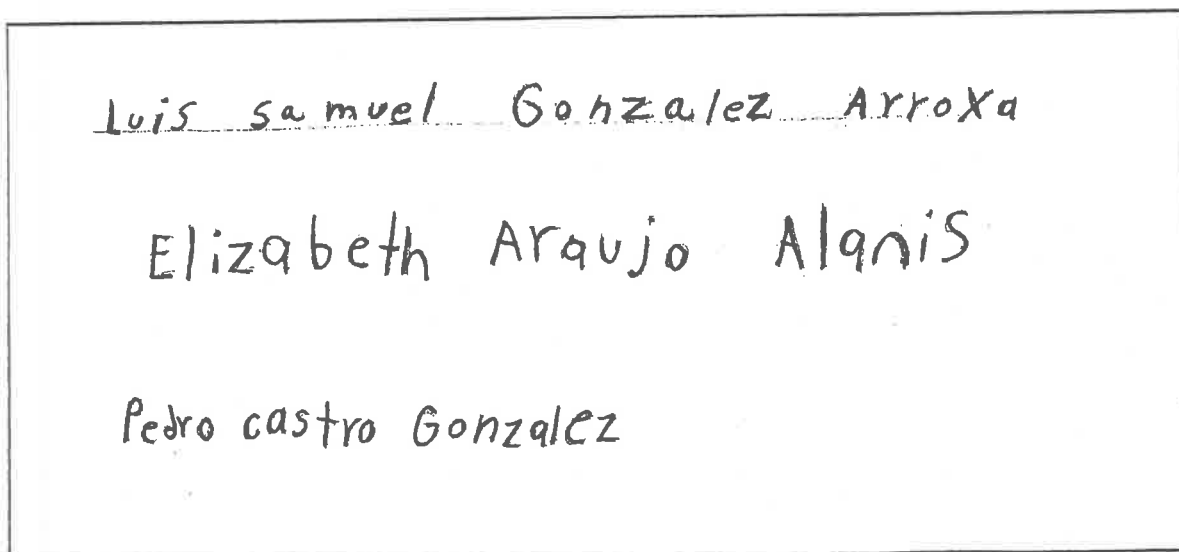 Luis samuel Gonzalez Arroxa
Elizabeth Araujo Alanis
Pedro castro Gonzalez